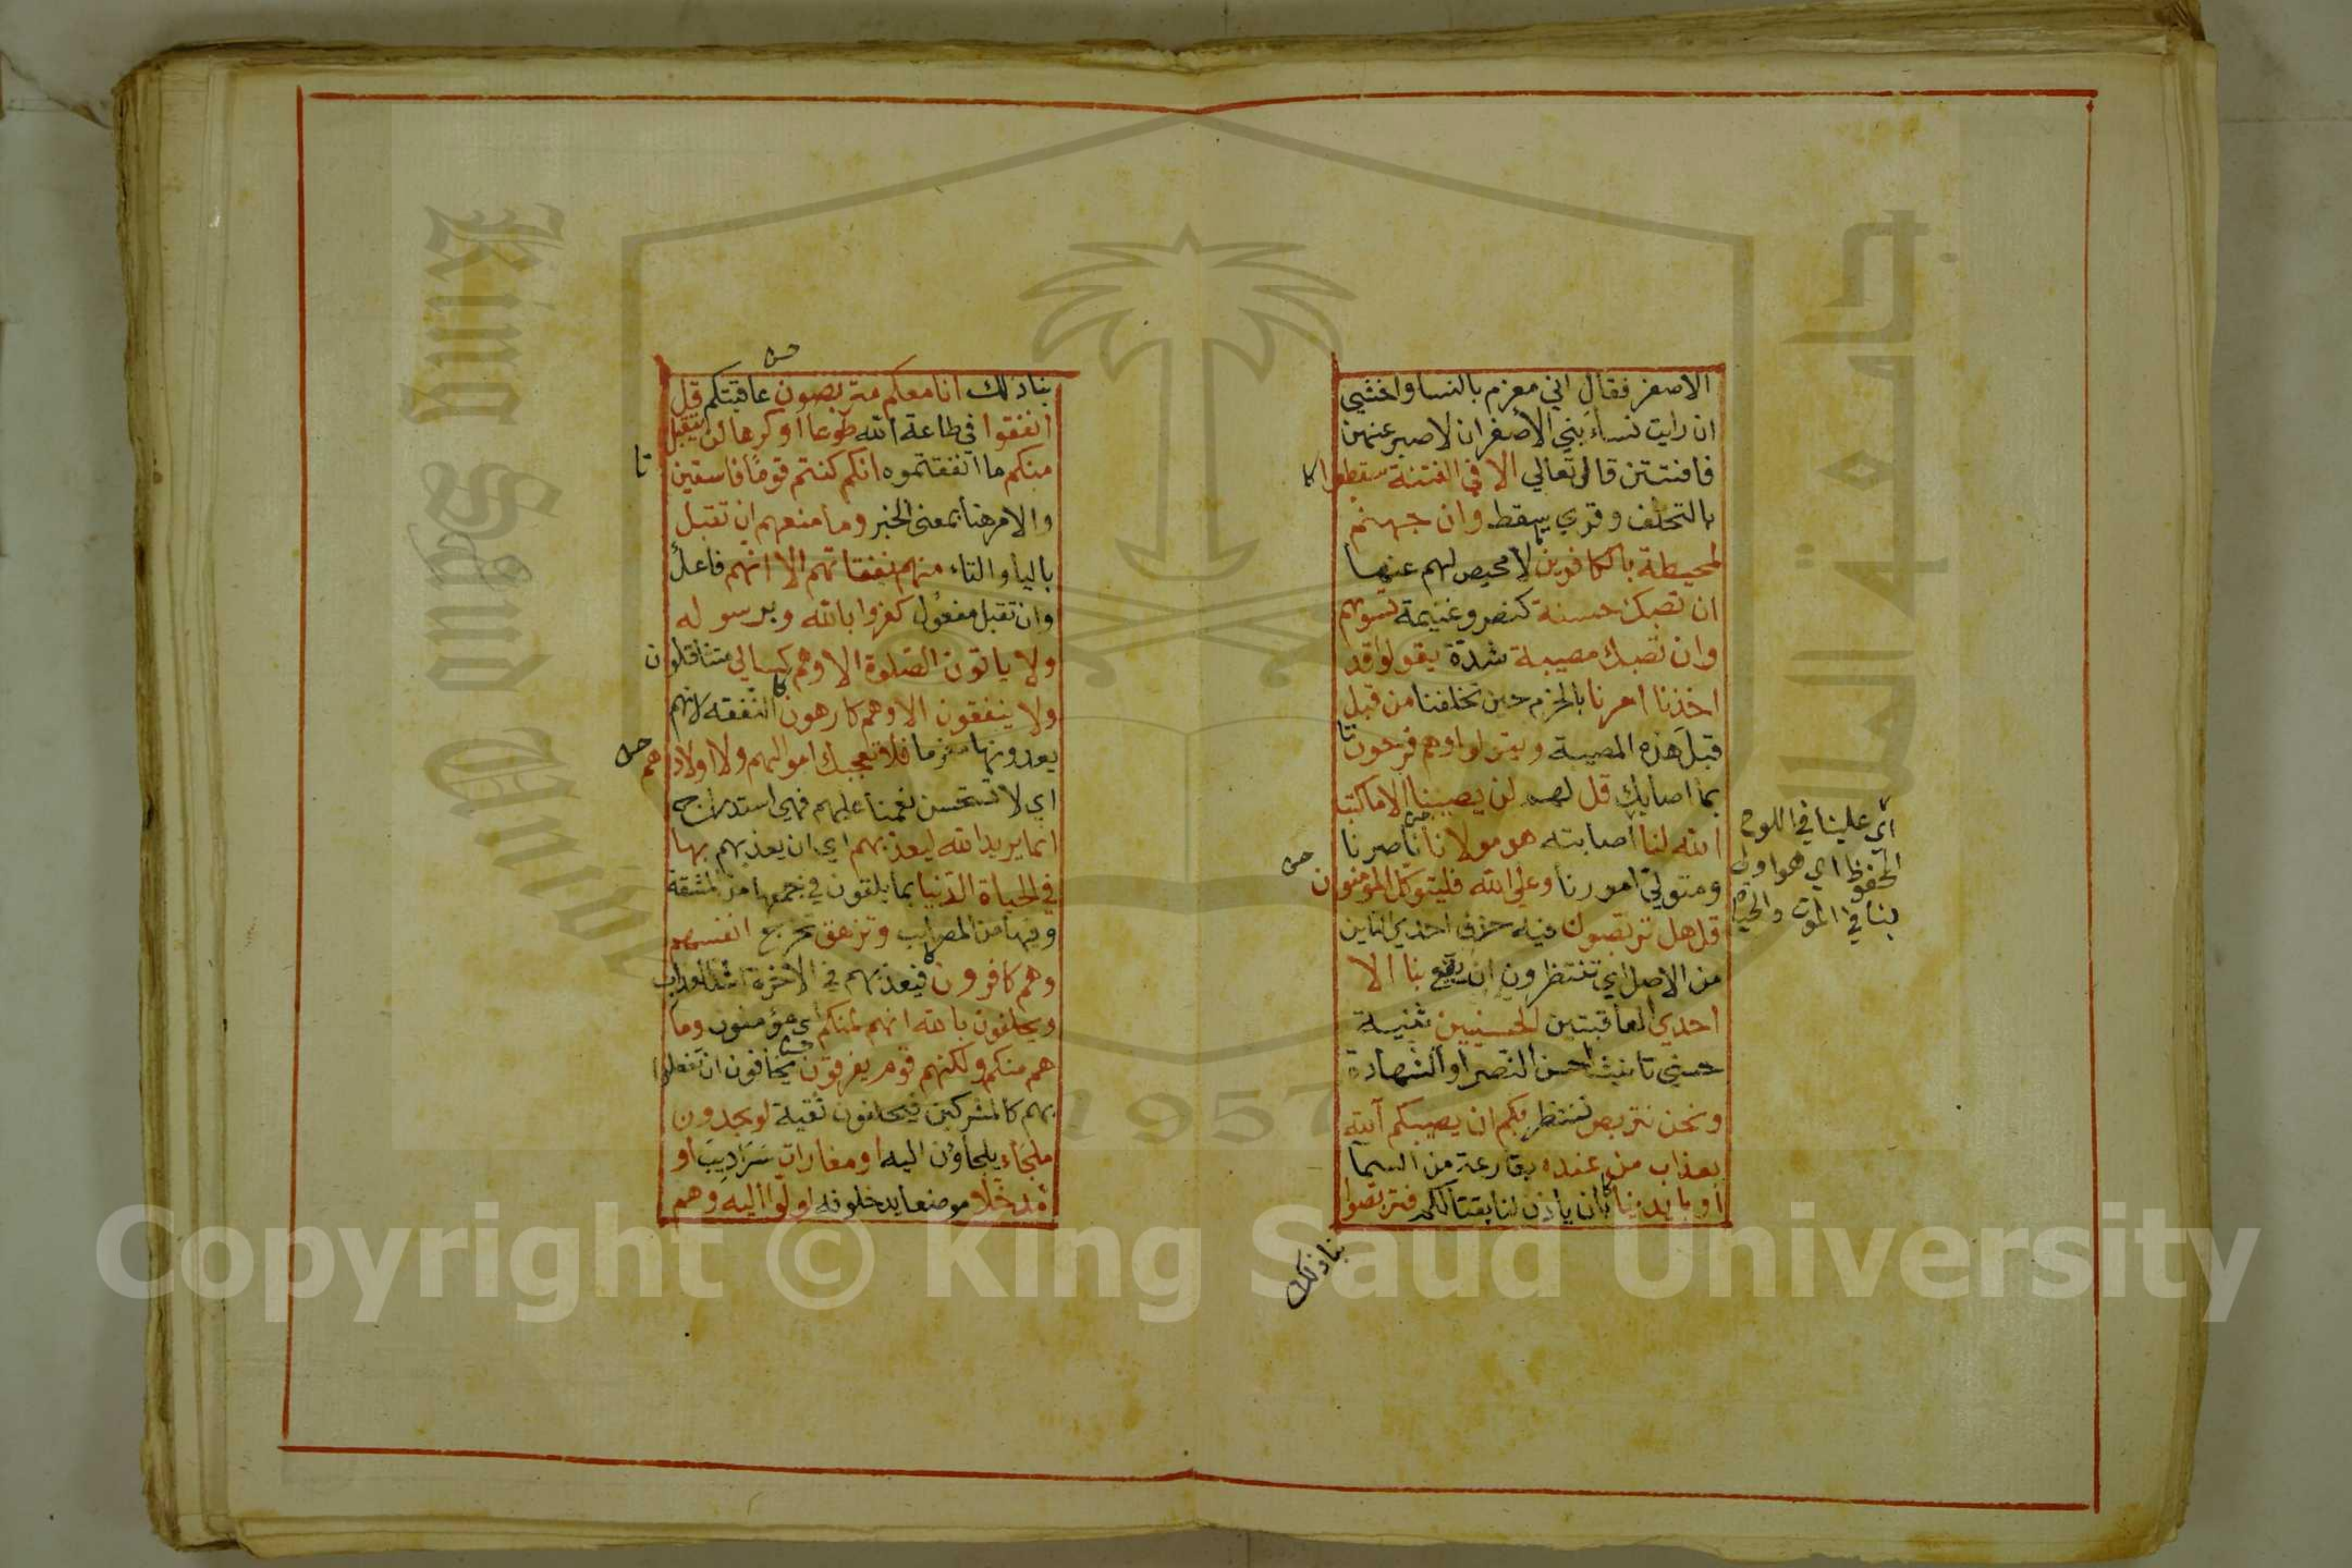 الاصفر فقال اني مغرم بالنسا واخشي
ان رايت نساء بني الاصفر ان لا صبر عنهن
فافتتن قال تعالي الا في الفتنة سقطوا كا
بالتخلف وقري سقط وان جهنم
لمحيطة بالكافرين لا محيص لهم عنها
ان تصبك حسنة كنصر وغنيمة تسؤهم
وان تصبك مصيبة شدة يقولوا قد
اخذنا امرنا بالحزم حين تخلفنا من قبل
قبل هذه المصيبة ويتولوا وهم فرحون تا
بما اصابك قل لهم لن يصيبنا الا ما كتب
الله لنا اصابته هو مولانا ناصرنا
ومتولي امورنا وعلي الله فليتوكل المؤمنون
قل هل تربصون فيه حذف احدي التاين
من الاصل اي تنتظرون ان يقع بنا الا
احدي العاقبتين الحسنيين تثنية
حسني تانيث احسن النصر او الشهادة
ونحن نتربص ننتظر بكم ان يصيبكم الله
بعذاب من عنده بقارعة من السما
او بايدينا بان ياذن لنا بقتالكم فتربصوا
بنا ذلك
اي علينا في اللوح
المحفوظ اي هو اولي
بنا في الموت والحياة
بنا ذلك انا معكم متربصون عاقبتكم قل
انفقوا في طاعة الله طوعا او كرها لن يتقبل
منكم ما انفقتموه انكم كنتم قوما فاسقين تا
والامر هنا بمعني الخبر وما منعهم ان تقبل
باليا والتاء منهم نفقاتهم الا انهم فاعل
وان تقبل مفعول كفروا بالله وبرسوله
ولا ياتون الصلوة الا وهم كسالي متثاقلون
ولا ينفقون الا وهم كارهون النفقه لانهم
يعدونها مغرما فلا تعجبك اموالهم ولا اولادهم
اي لا تستحسن نعمنا عليهم فهي استدراج
انما يريد الله ليعذبهم اي ان يعذبهم بها
في الحياة الدنيا بما يلقون في جمعها من المشقة
وفيها من المصايب وتزهق تخرج انفسهم
وهم كافرون فيعذبهم في الاخرة اشد العذاب
ويحلفون بالله انهم لمنكم اي مؤمنون وما
هم منكم ولكنهم قوم يفرقون يخافون ان تفعلوا
بهم كالمشركين فيحلفون تقية لو يجدون
ملجاء يلجاؤن اليه او مغارات سراديب او
مدخلا موضعا يدخلونه لولوا اليه وهم
King Saud University
جامعة الملك
1957
Copyright © King Saud University